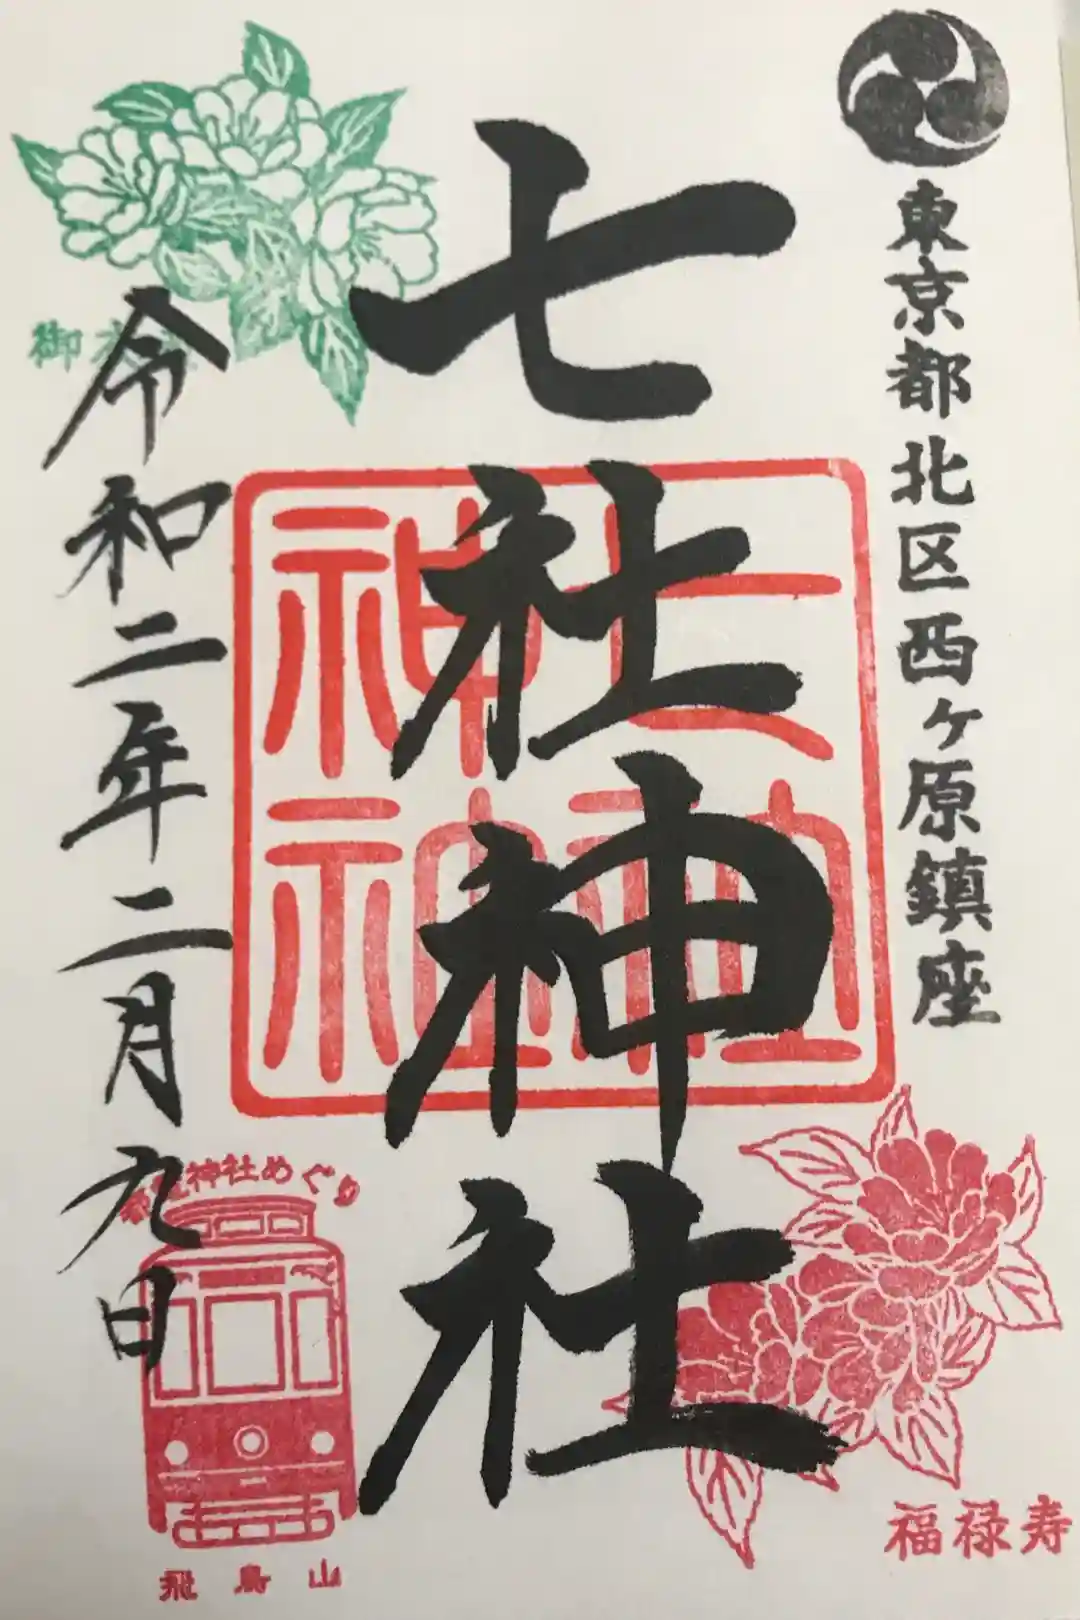 東京都北区西ヶ原鎮座
七社神社
七社神社
令和二年二月九日
御
神社めぐり
飛鳥山
福禄寿